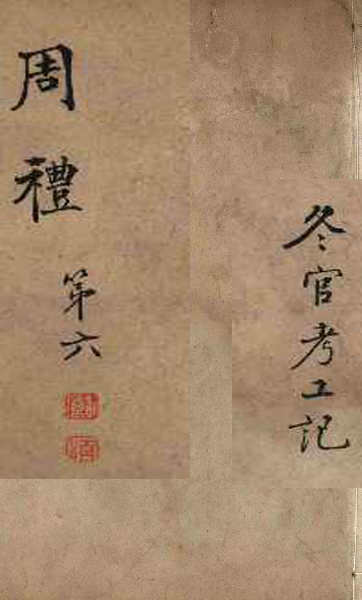 冬官考工記
周禮
第六